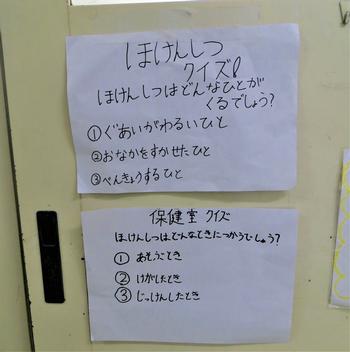 ほけんしつ
クイズ!
ほけんしつはどんなひとが
くるでしょう?
①ぐあいがわるいひと
②おなかをすかせたひと
③べんきょうするひと
保健室 クイズ
ほけんしつは、どんなときにつかうでしょう?
① あそうごとき
② けがしたとき
③ じっけんしたとき